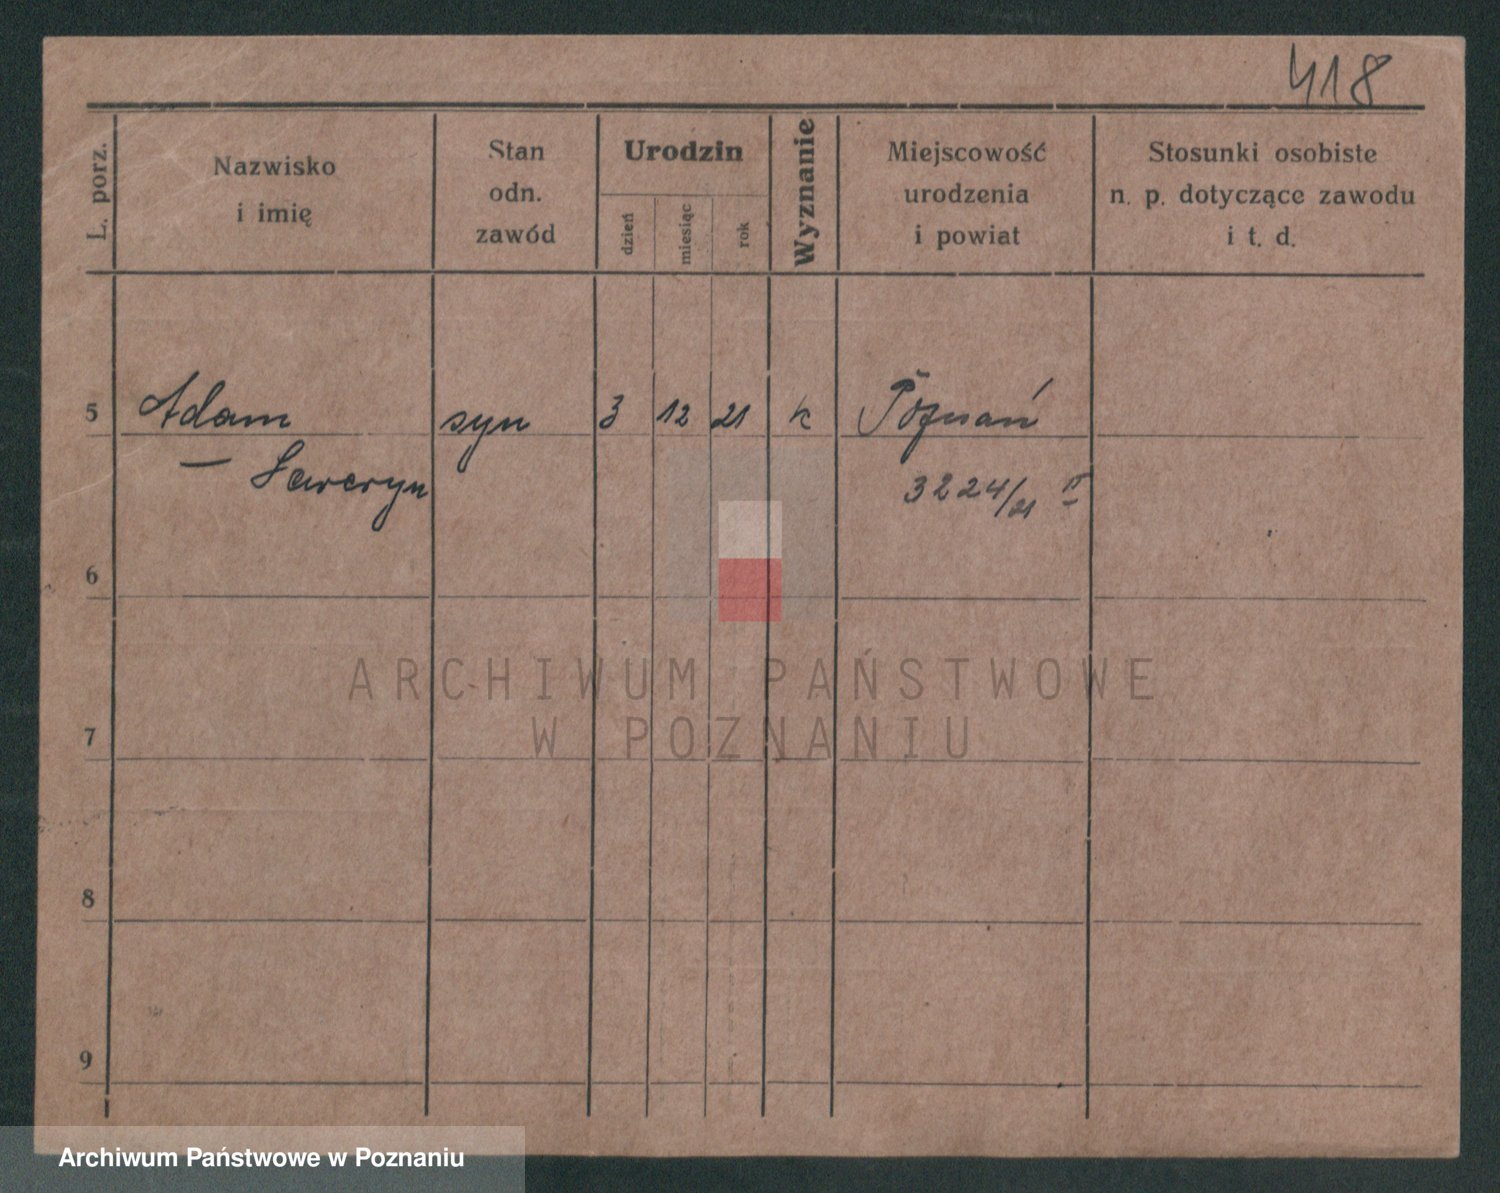 418
L. porz.
Nazwisko
i imię
Stan
odn.
zawód
Urodzin
dzień
miesiąc
rok
Wyznanie
Miejscowość
urodzenia
i powiat
Stosunki osobiste
n. p. dotyczące zawodu
i t. d.
5 Adam syn 3 12 21 k Poznań
— Seweryn 3224/21 II
6
7
8
9
ARCHIWUM PAŃSTWOWE
W POZNANIU
Archiwum Państwowe w Poznaniu